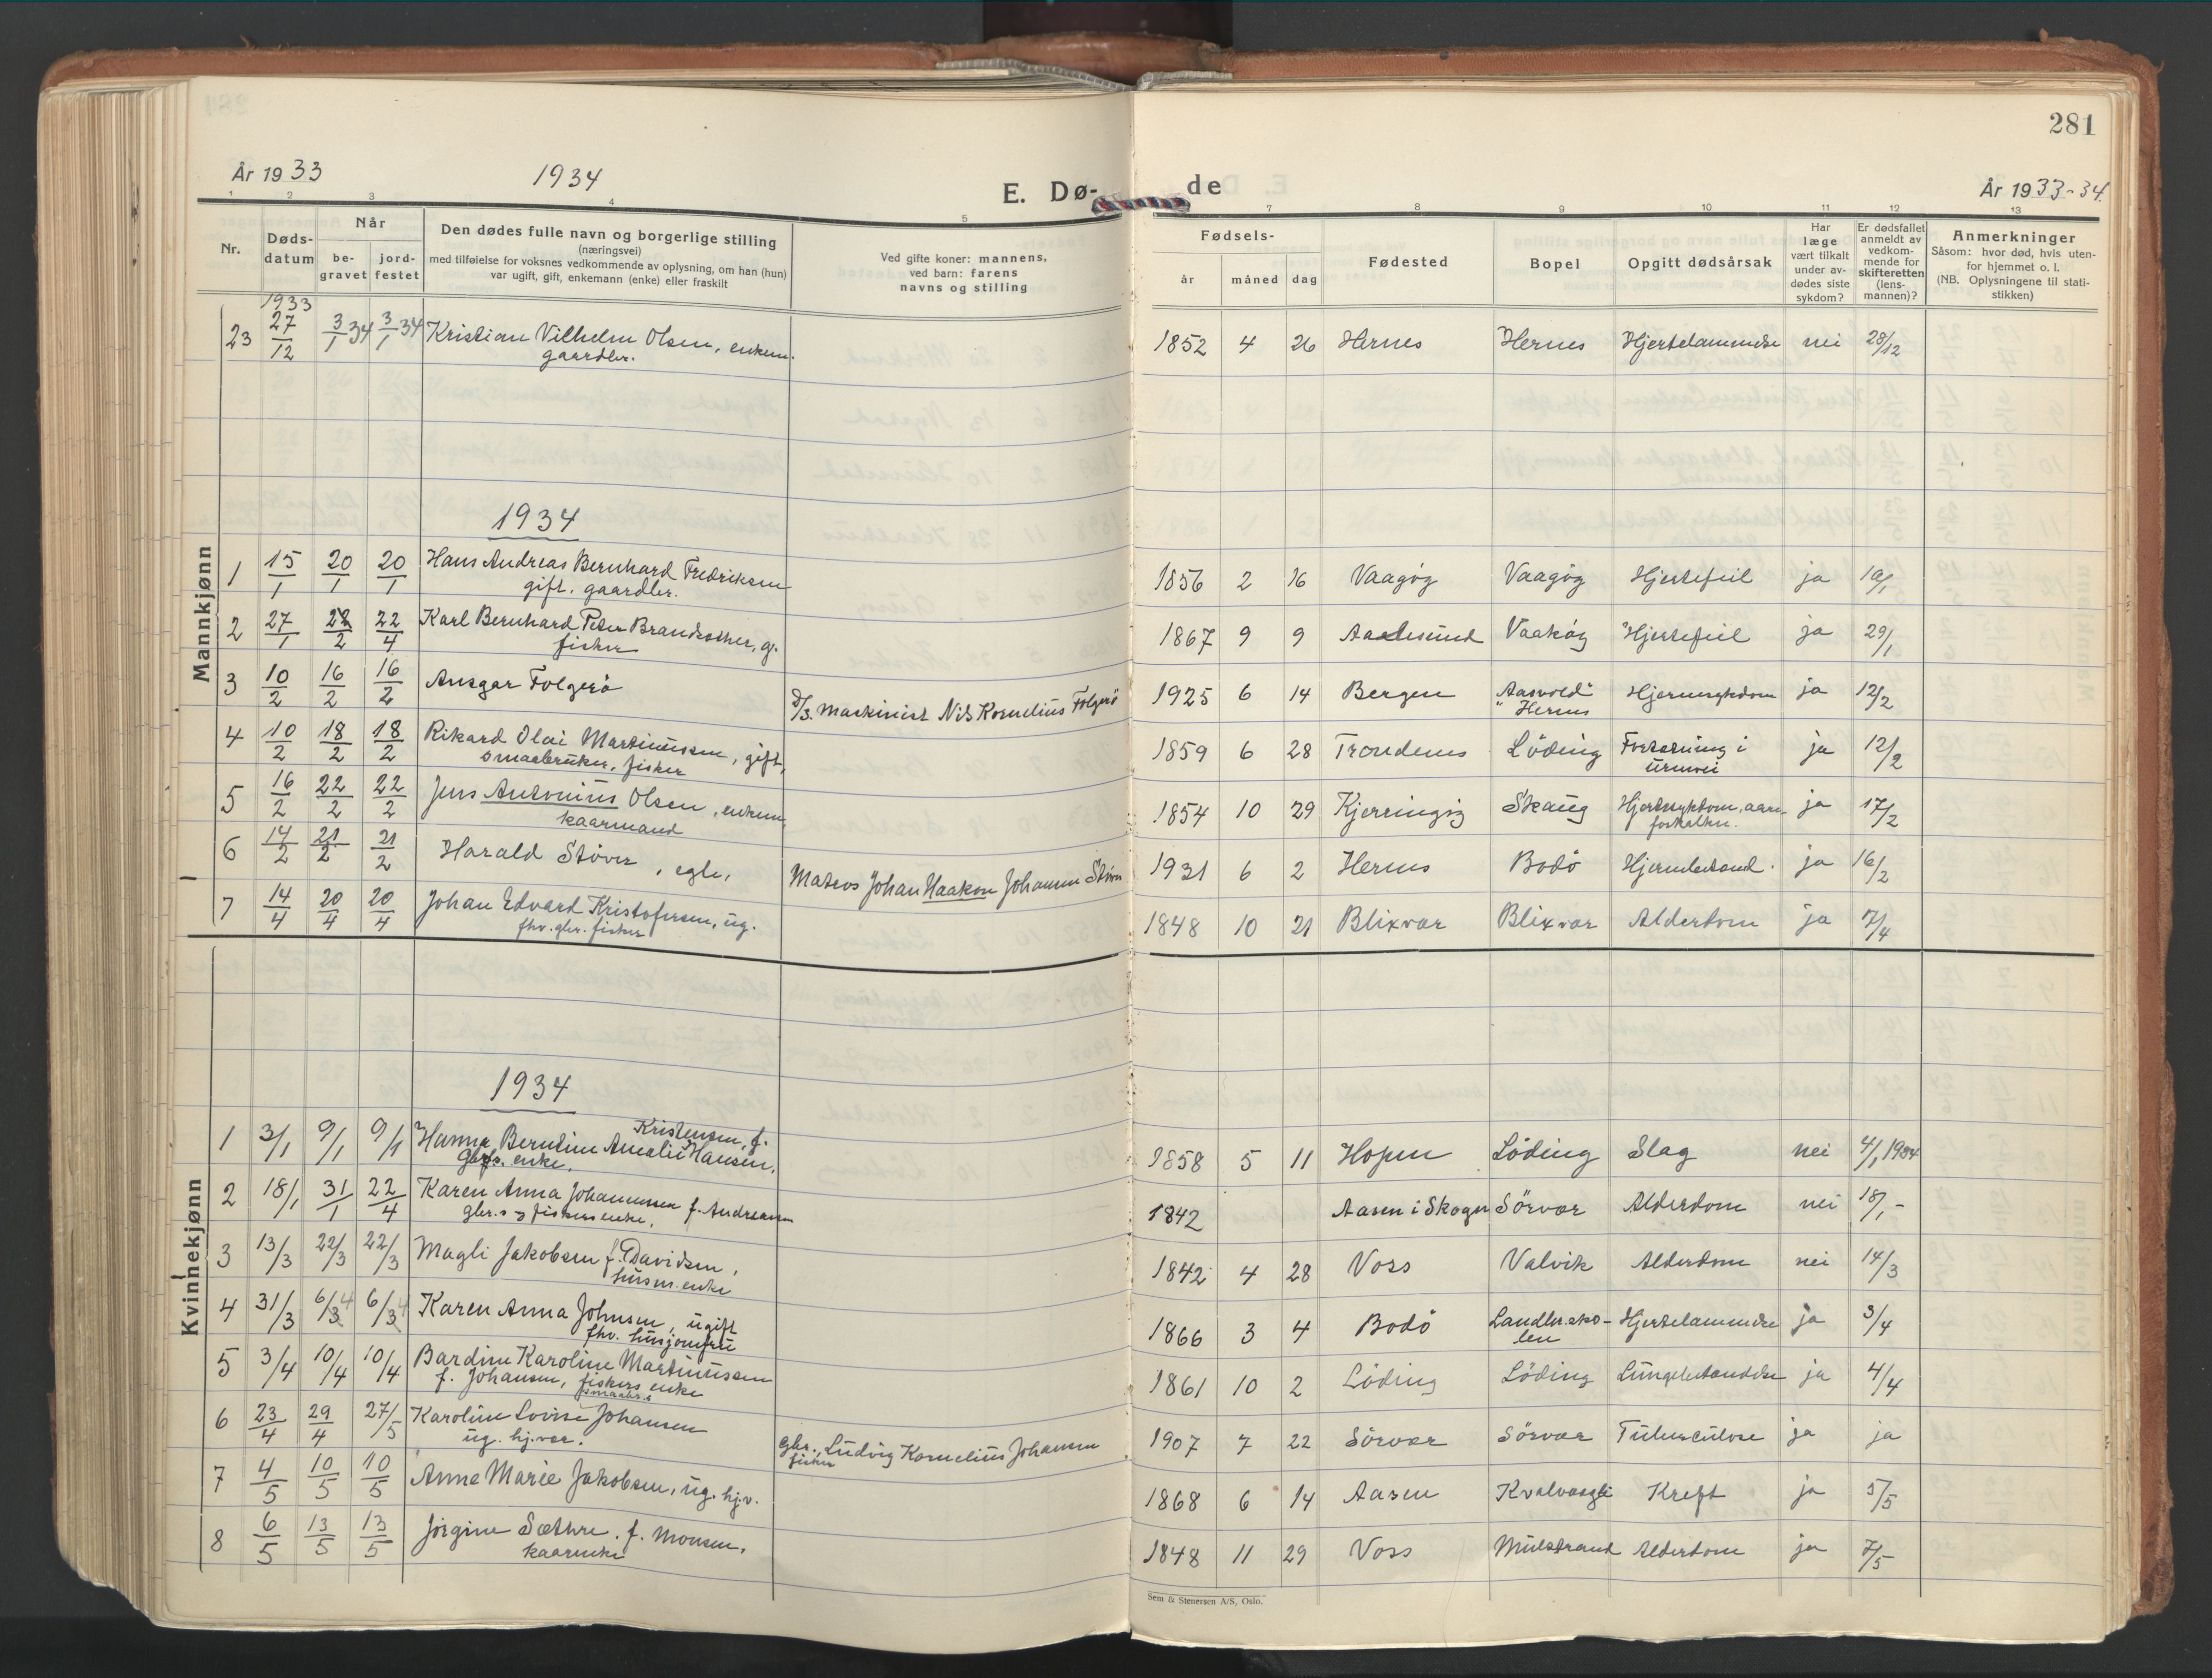 281
År 1933 1934 E. Dø- de År 1933-34.
1 2 3 4 5 7 8 9 10 11 12 13
Nr.
Døds-
datum
Når
be-
gravet
jord-
festet
Den dødes fulle navn og borgerlige stilling
(næringsvei)
med tilføielse for voksnes vedkommende av oplysning, om han (hun)
var ugift, gift, enkemann (enke) eller fraskilt
Ved gifte koner: mannens,
ved barn: farens
navns og stilling
Fødsels-
år måned dag
Fødested
Bopel
Opgitt dødsårsak
Har
læge
vært tilkalt
under av-
dødes siste
sykdom?
Er dødsfallet
anmeldt av
vedkom-
mende for
skifteretten
(lens-
mannen)?
Anmerkninger
Såsom: hvor død, hvis uten-
for hjemmet o. l.
(NB. Oplysningene til stati-
stikken)
Mannkjønn
1933
23 27/12 3/1 34 3/1 34 Kristian Vilhelm Olsen, enkem. 1852 4 26 Hernes Hernes Hjertelammelse nei 28/12
gaardbr.
1934
1 15/1 20/1 20/1 Hans Andreas Bernhard Fredriksen 1856 2 16 Vaagög Vaagög Hjertefeil ja
gift. gaardbr.
2 27/1 22/4 Karl Bernhard Peter g. 1867 9 9 Aalesund Hjertefeil ja 29/1
fisker
3 10/2 16/2 16/2 Ansgar Folgerö Maskinist Nils Kornelius Folgerö 1925 6 14 Bergen "Aasvold" ja 12/2
Hernes
4 10/2 18/2 18/2 Rikard Olai Martinussen, gift, 1859 6 28 Trondenes Löding i ja 12/2
smaabruker, fisker urinvei
5 16/2 22/2 22/2 Jens Antonius Olsen, enkem. 1854 10 29 Kjerringöy Skaug Hjertesykdom, aare- ja 17/2
kaarmand forkalkn.
6 14/2 21/2 21/2 Harald Stöver, egte, Matros Johan Haakon Johansen Stöver 1931 6 2 Hernes Bodö ja 16/2
7 14/4 20/4 20/4 Johan Edvard Kristofersen, ug. 1848 10 21 Blixvær Blixvær Alderdom ja 7/4
fhv. gbr. fisker
Kvinnekjønn
1934
Kristensen, f.
1 3/1 9/1 9/1 Hanna Berntine Amalie Hansen, 1858 5 11 Hopen Löding Slag nei 4/1 1934
enke.
2 18/1 31/1 22/4 Karen Anna Johannessen f. Andreassen 1842 Aasen i Skogn Sörvær Alderdom nei 18/1 -
gbr.s og fiskers enke.
3 13/3 22/3 22/3 Magli Jakobsen f. Davidsen, 1842 4 28 Voss Valvik Alderdom nei 14/3
husm. enke
4 31/3 Karen Anna Johnsen, ugift 1866 3 4 Bodö Landbr.sko- Hjertelammelse ja 3/4
fhv. husjomfru len
5 3/4 10/4 10/4 Bardine Karoline Martinussen 1861 10 2 Löding Löding Lungebetændelse ja 4/4
f. Johansen, fiskers enke
smaabr.s
6 23/4 29/4 27/5 Karoline Lovise Johansen Gbr., Ludvig Kornelius Johansen 1907 7 22 Sörvær Sörvær Tuberculose ja ja
ug. hj.vær. fisker
7 4/5 10/5 10/5 Anna Marie Jakobsen, ug. hj.v. 1868 6 14 Aasen Kreft ja 5/5
8 6/5 13/5 13/5 Jörgine Sæthre, f. Monsen, 1848 11 29 Voss Mulstrand Alderdom ja 7/5
kaarenke
Sem & Stenersen A/S, Oslo.